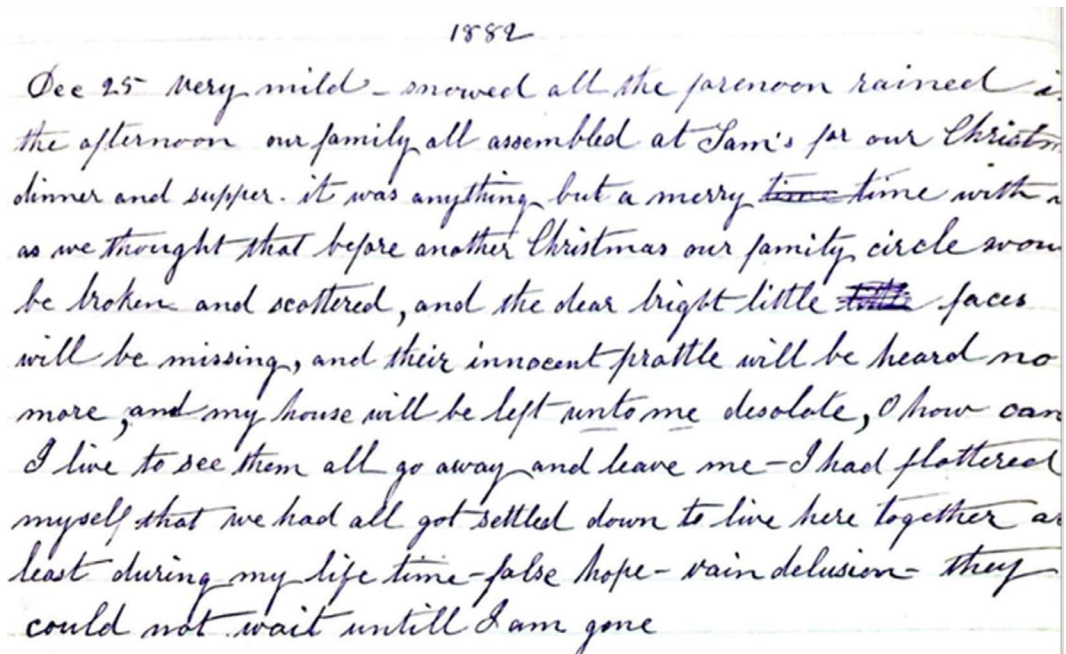 1882
Dec 25 very mild - snowed all the forenoon rained i
the afternoon our family all assembled at Sam's for our Christm
dinner and supper. it was anything but a merry time time with
as we thought that before another Christmas our family circle wou
be broken and scattered, and the dear bright little faces
will be missing, and their innocent prattle will be heard no
more, and my house will be left unto me desolate, O how can
I live to see them all go away and leave me - I had flattered
myself that we had all got settled down to live here together a
least during my life time - false hope - vain delusion - they
could not wait untill I am gone